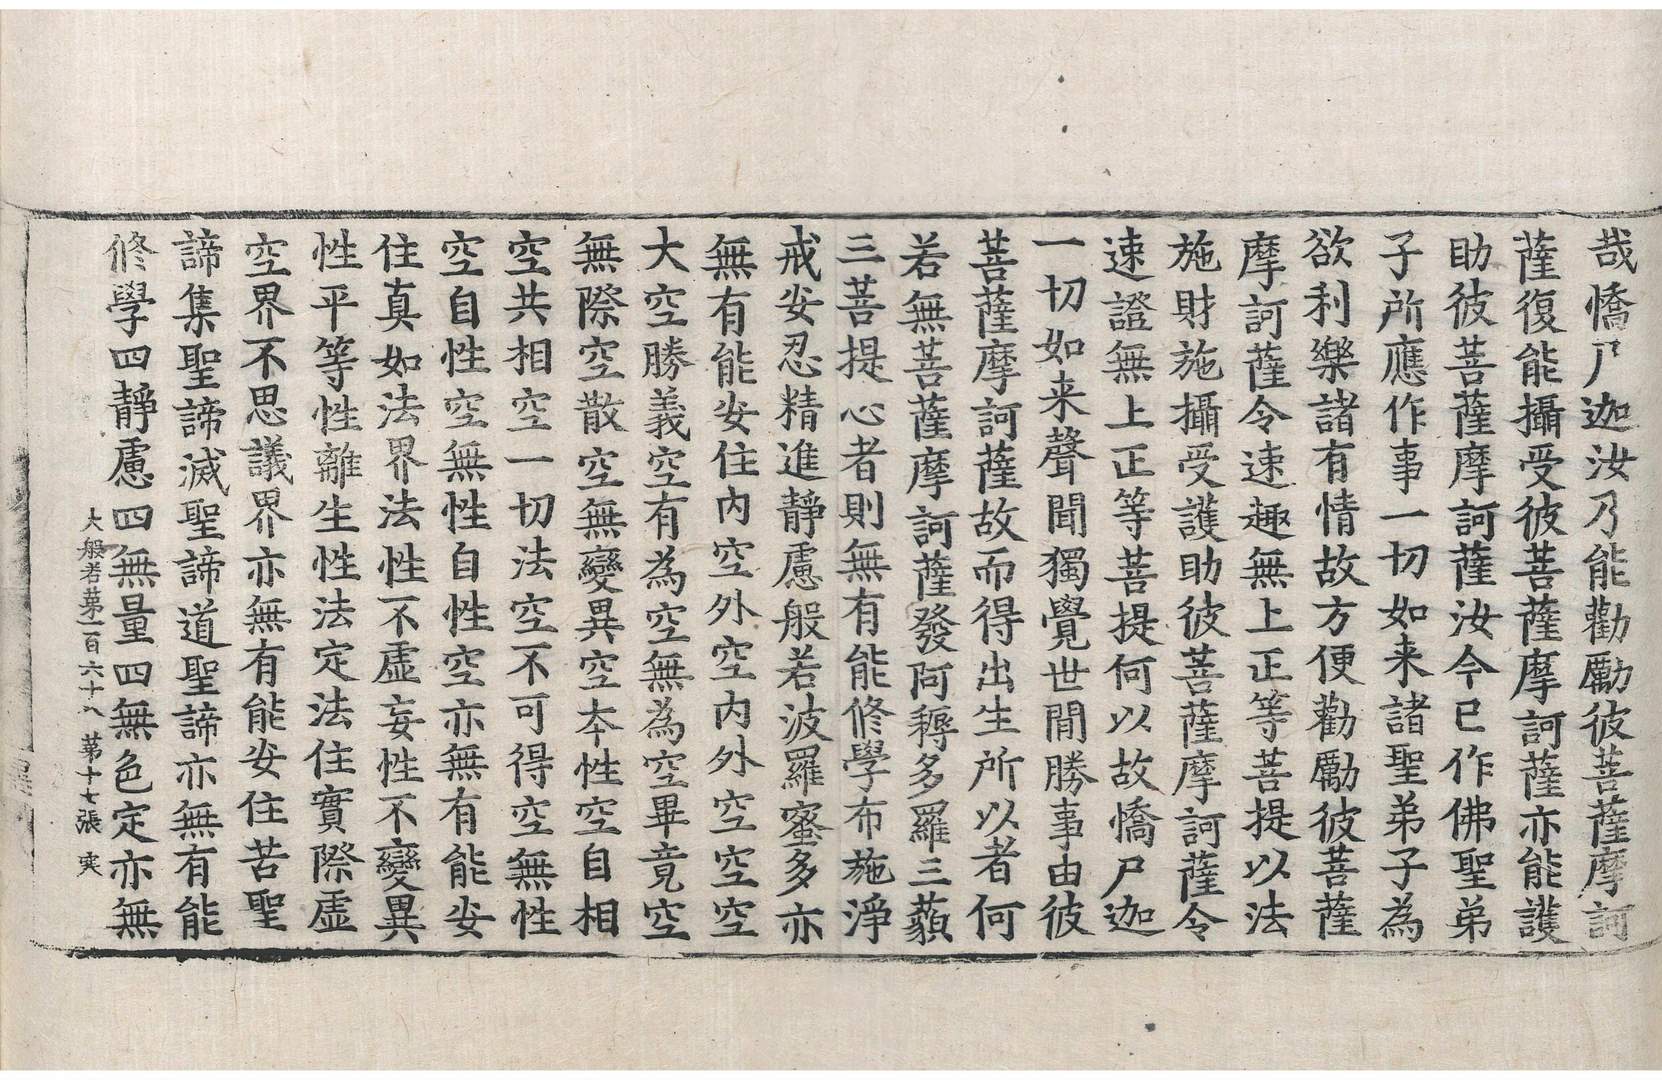 哉憍尸迦汝乃能勸勵彼菩薩摩訶
薩復能攝受彼菩薩摩訶薩亦能護
助彼菩薩摩訶薩汝今已作佛聖弟
子所應作事一切如来諸聖弟子為
欲利樂諸有情故方便勸勵彼菩薩
摩訶薩令速趣無上正等菩提以法
施財施攝受護助彼菩薩摩訶薩令
速證無上正等菩提何以故憍尸迦
一切如来聲聞獨覺世間勝事由彼
菩薩摩訶薩故而得出生所以者何
若無菩薩摩訶薩發阿耨多羅三藐
三菩提心者則無有能修學布施淨
戒安忍精進靜慮般若波羅蜜多亦
無有能安住內空外空內外空空空
大空勝義空有為空無為空畢竟空
無際空散空無變異空本性空自相
空共相空一切法空不可得空無性
空自性空無性自性空亦無有能安
住真如法界法性不虛妄性不變異
性平等性離生性法定法住實際虛
空界不思議界亦無有能安住苦聖
諦集聖諦滅聖諦道聖諦亦無有能
修學四靜慮四無量四無色定亦無
大般若第一百六十八 第十七張